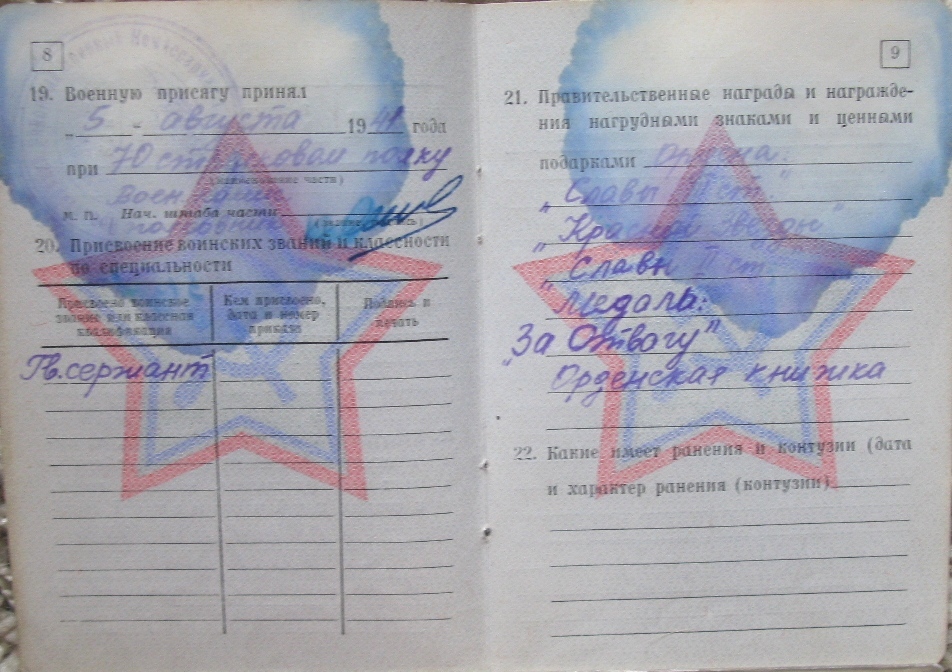 8
19. Военную присягу принял
„ 5 - августа 1941 года
при 70 стрелковом полку
(наименование части)
воен.
м. п. Нач. штаба части
20. Присвоение воинских званий и классности
по специальности
Присвоено воинское
звание или классная
квалификация
Кем присвоено,
дата и номер
приказа
Подпись и
печать
Гв. сержант
9
21. Правительственные награды и награжде-
ния нагрудными знаками и ценными
подарками Ордена:
„Славы ст."
„Красной Звезды"
„Славы II ст.
Медаль:
„За Отвагу"
Орденская книжка
22. Какие имеет ранения и контузии (дата
и характер ранения (контузии)